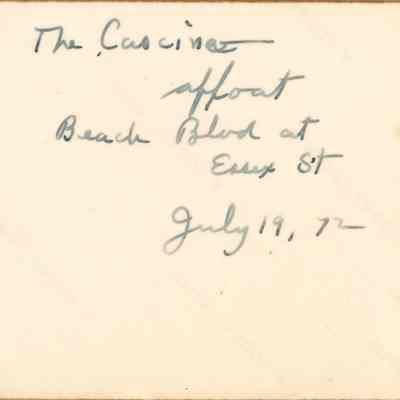 The Cascinos
affoat
Beach Blvd at
Essex St
July 19, 72